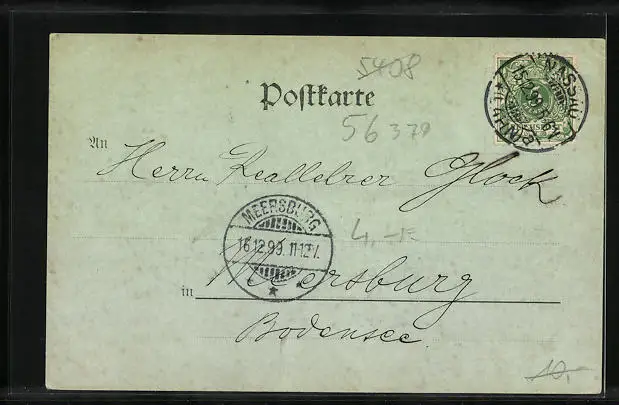 5408
Postkarte
56379
An
Herrn Reallehrer Glock
MEERSBURG
16.12.99. 11-12V.
4,-
in Meersburg
Bodensee.
NASSAU
15.12.99
10,-